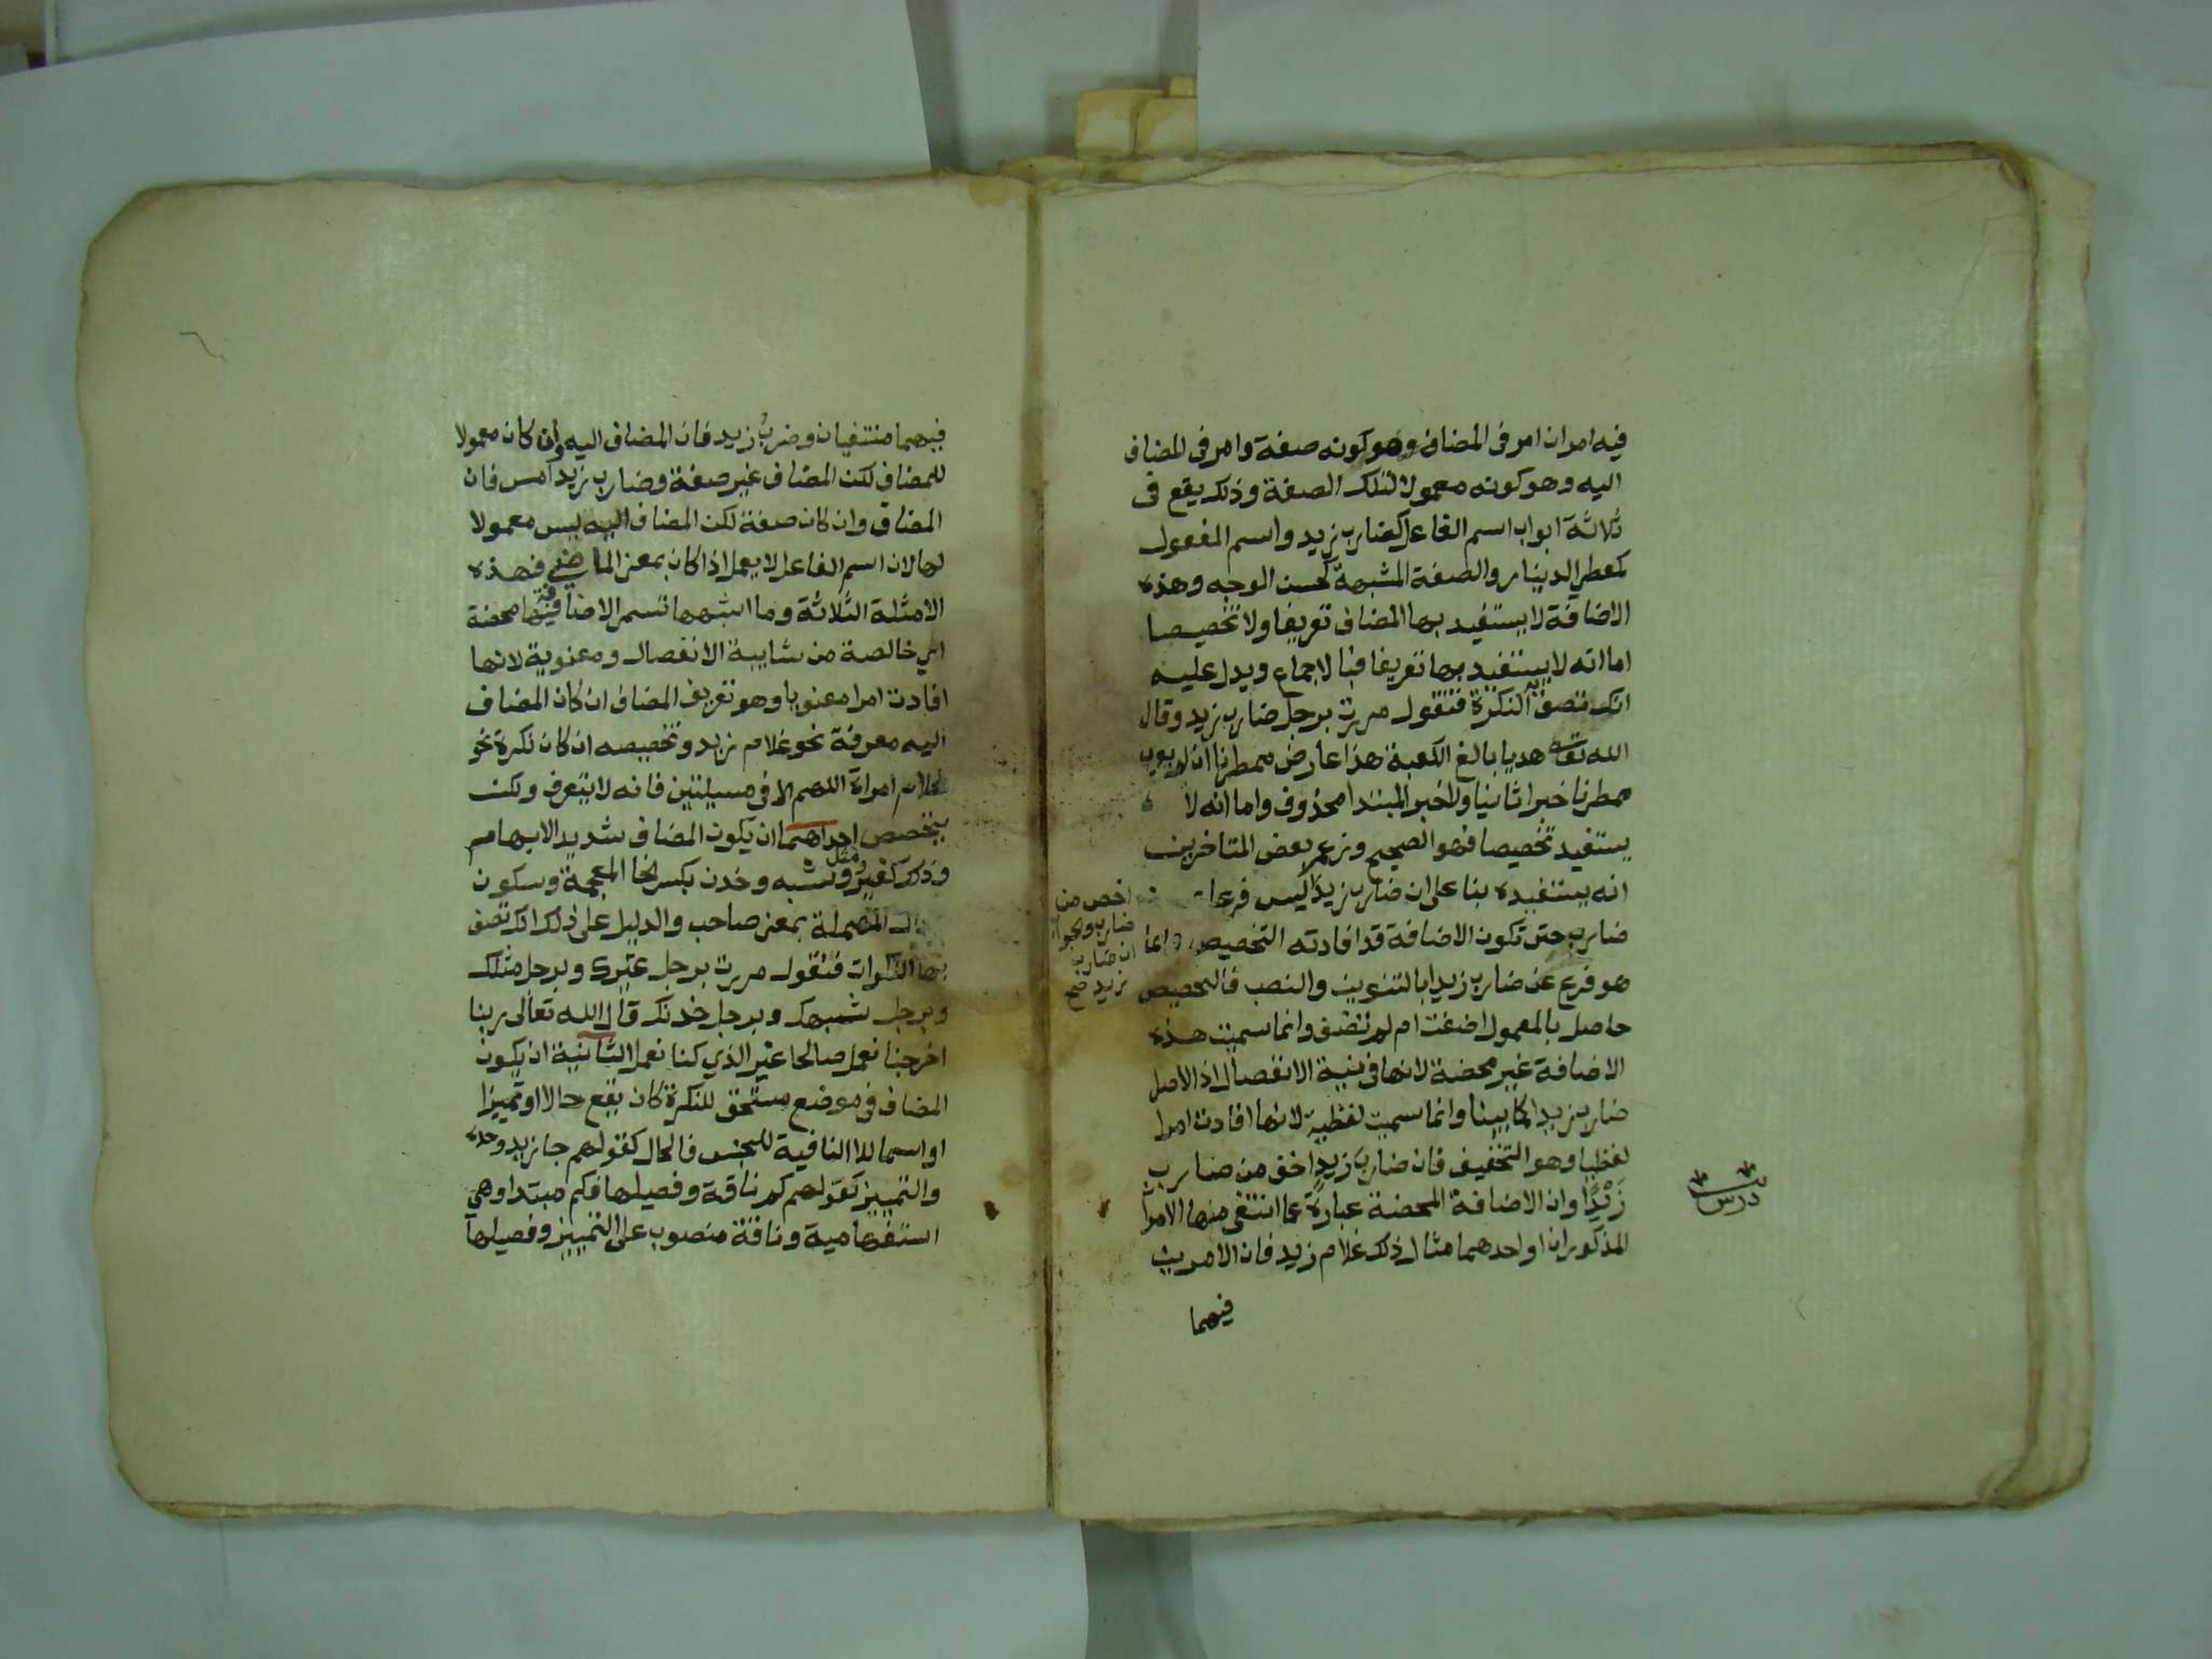 فيه امران امر فى المضاف وهو كونه صفة وامر فى المضاف
اليه وهو كونه معمولا لتلك الصفة وذلك يقع فى
ثلاثة ابواب اسم الفاعل كضارب زيد واسم المفعول
كمعطي الدينار والصفة المشبهة كحسن الوجه وهذه
الاضافة لا يستفيد بها المضاف تعريفا ولا تخصيصا
اما انه لا يستفيد بها تعريفا فبالاجماع ويدل عليه
انك تصف به النكرة فتقول مررت برجل ضارب زيد وقال
الله تعا هديا بالغ الكعبة هذا عارض ممطرنا
ممطرنا خبرا ثانيا ولا خبر المبتدا محذوف واما انه لا
يستفيد تخصيصا فهو الصحيح وزعم بعض المتاخرين
انه يستفيده بنا على ان ضارب زيدا ليس فرعا
ضارب حتى تكون الاضافة قد افادته التخصيص وانما
هو فرع عن ضارب زيدا بالتنوين والنصب فالتخصيص
حاصل بالمعمول اضفت ام لم تضف وانما سميت هذه
الاضافة غير محضة لانها فى نية الانفصال اذ الاصل
ضارب زيدا كما بينا وانما سميت لفظية لانها افادت امرا
لفظيا وهو التخفيف فان ضارب زيد اخف من ضارب
زيدا وان الاضافة المحضة عبارة عما انتفى منها الامران
المذكوران او احدهما مثال ذلك غلام زيد فان الامرين
فيهما
اخص من
ضارب والجواب
ان ضارب
زيد صح
درس
فيهما منتفيان وضرب زيد فان المضاف اليه وان كان معمولا
للمضاف لكن المضاف غير صفة وضارب زيد امس فان
المضاف وان كان صفة لكن المضاف اليه ليس معمولا
لها لان اسم الفاعل لا يعمل اذا كان بمعنى الماضي فهذه
الامثلة الثلاثة وما اشبهها تسمى الاضافة فيها محضة
اي خالصة من شايبة الانفصال ومعنوية لانها
افادت امرا معنويا وهو تعريف المضاف ان كان المضاف
اليه معرفة نحو غلام زيد وتخصيصه ان كان نكرة نحو
غلام امراة اللهم الا فى مسيلتين فانه لا يتعرف ولكن
يتخصص احداهما ان يكون المضاف شديد الابهام
وذلك كغير ومثل وشبه وخدن بكسر الخا المعجمة وسكون
الدال المهملة بمعنى صاحب والدليل على ذلك انك تصف
بها النكرات فتقول مررت برجل غيرك وبرجل مثلك
وبرجل شبهك وبرجل خدنك قال الله تعالى ربنا
اخرجنا نعمل صالحا غير الذي كنا نعمل الثانية ان يكون
المضاف فى موضع مستحق للنكرة كان يقع حالا او تمييزا
او اسما للا النافية للجنس فالحال كقولهم جا زيد وحده
والتمييز كقولهم كم ناقة وفصيلها فكم مبتدا وهي
استفهامية وناقة منصوب على التمييز وفصيلها